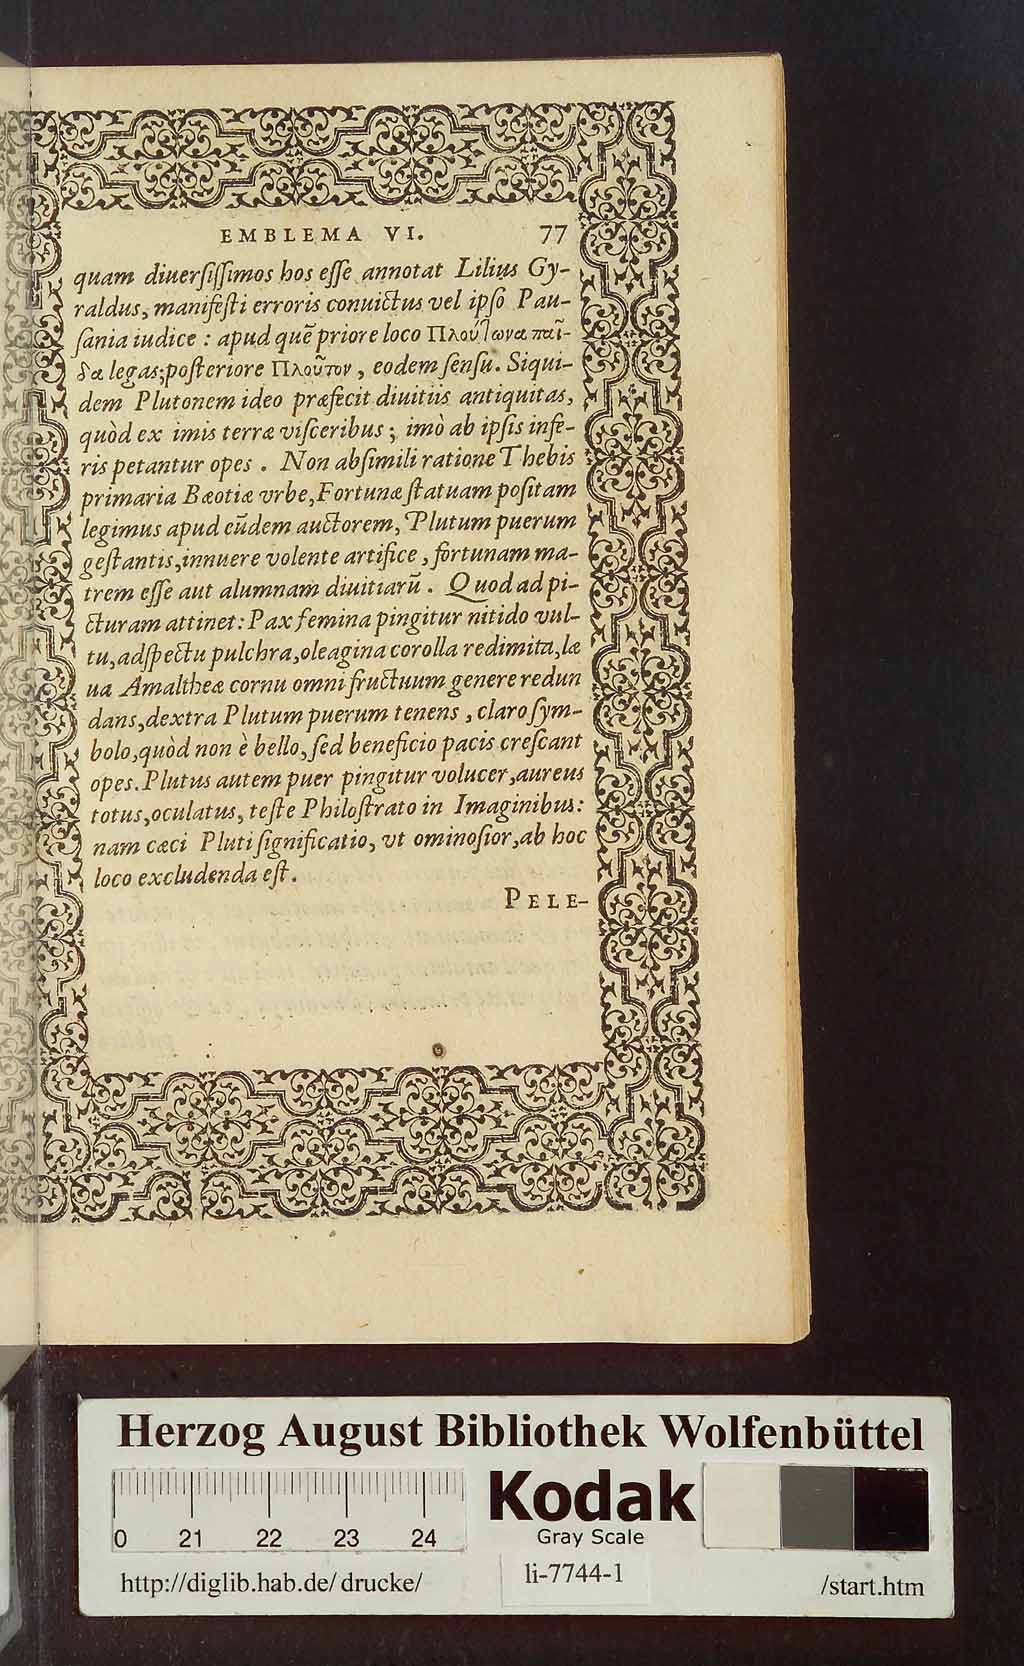 EMBLEMA VI. 77
quam diuersissimos hos esse annotat Lilius Gy-
raldus, manifesti erroris conuictus vel ipso Pau-
sania iudice : apud quẽ priore loco Πλούτωνα παῖ-
δα legas; posteriore Πλοῦτον, eodem sensu. Siqui-
dem Plutonem ideo præfecit diuitiis antiquitas,
quòd ex imis terræ visceribus ; imò ab ipsis infe-
ris petantur opes . Non absimili ratione Thebis
primaria Bæotiæ vrbe, Fortunæ statuam positam
legimus apud eũdem auctorem, Plutum puerum
gestantis, innuere volente artifice , fortunam ma-
trem esse aut alumnam diuitiarũ . Quod ad pi-
cturam attinet: Pax femina pingitur nitido vul-
tu, adspectu pulchra, oleagina corolla redimita, læ
ua Amaltheæ cornu omni fructuum genere redun
dans, dextra Plutum puerum tenens , claro sym-
bolo, quòd non è bello, sed beneficio pacis crescant
opes. Plutus autem puer pingitur volucer, aureus
totus, oculatus, teste Philostrato in Imaginibus:
nam cæci Pluti significatio, vt ominosior, ab hoc
loco excludenda est.
PELE-
Herzog August Bibliothek Wolfenbüttel
0 21 22 23 24
Kodak
Gray Scale
http://diglib.hab.de/drucke/ li-7744-1 /start.htm